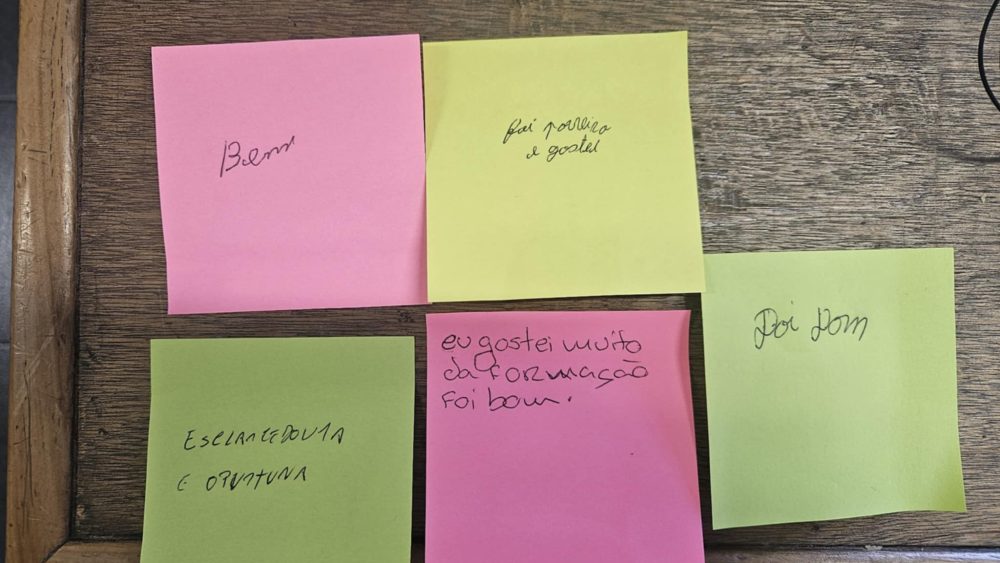 Bem
foi porreiro
e gostei
Foi Bom
eu gostei muito
da formação
foi bom.
ESCLARECEDOURA
E OPURTUNA